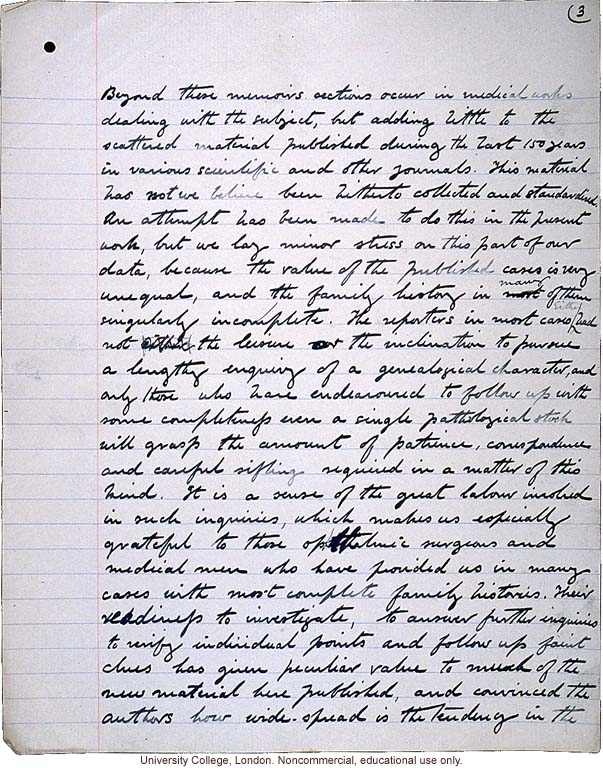 3
Beyond these memoirs sections occur in medical works
dealing with the subject, but adding little to the
scattered material published during the last 150 years
in various scientific and other journals. This material
has not we believe been hitherto collected and standardised.
An attempt has been made to do this in the present
work, but we lay minor stress on this part of our
data, because the value of the published cases is very
many
unequal, and the family history in most of them
either
singularly incomplete. The reporters in most cases had
not the leisure or the inclination to pursue
a lengthy enquiry of a genealogical character, and
only those who have endeavoured to follow up with
some completeness even a single pathological stock
will grasp the amount of patience, correspondence
and careful sifting required in a matter of this
kind. It is a sense of the great labour involved
in such inquiries, which makes us especially
grateful to those ophthalmic surgeons and
medical men who have provided us in many
cases with most complete family histories. Their
readiness to investigate, to answer further inquiries
to verify individual points and follow up faint
clues has given peculiar value to much of the
new material here published, and convinced the
authors how wide-spread is the tendency in the
University College, London. Noncommercial, educational use only.